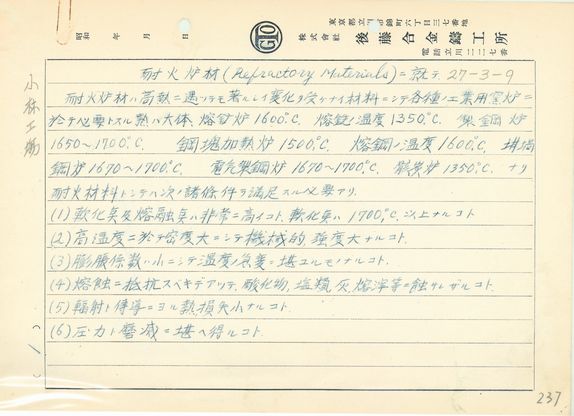 東京都立川市錦町六丁目三七番地
株式会社 後藤合金鋳工所
電話立川二二二七番
昭和 年 月 日
耐火炉材 (Refractory Materials) ニ就テ. 27-3-9
耐火炉材ハ高熱ニ遇ツテモ著ルシイ変化ヲ受ケナイ材料ニシテ各種ノ工業用窯炉ニ
於テ必要トスル熱ハ大体. 熔鉱炉 1600°C. 熔銑ノ温度 1350°C. 製鋼炉
1650~1700°C. 鋼塊加熱炉 1500°C. 熔鋼ノ温度 1600°C. 坩堝
鋼炉 1670~1700°C. 電気製鋼炉 1670~1700°C. 炉 1350°C. ナリ
耐火材料トシテハ次ノ諸條件ヲ満足スル必要アリ.
(1) 軟化臭及熔融臭ハ非常ニ高イコト. 軟化臭ハ 1700°C. 以上ナルコト
(2) 高温度ニ於テ密度大ニシテ機械的强度大ナルコト.
(3) 膨脹係数ハ小ニシテ温度ノ急変ニ堪ユルモノナルコト.
(4) 熔蝕ニ抵抗スベキデアリテ, 酸化物, 塩類, 灰, 熔滓等ニ蝕サレザルコト.
(5) 輻射ト傳導ニヨル熱損失小ナルコト.
(6) 圧力ト磨減ニ堪ヘ得ルコト.
小林工場
(1)
237